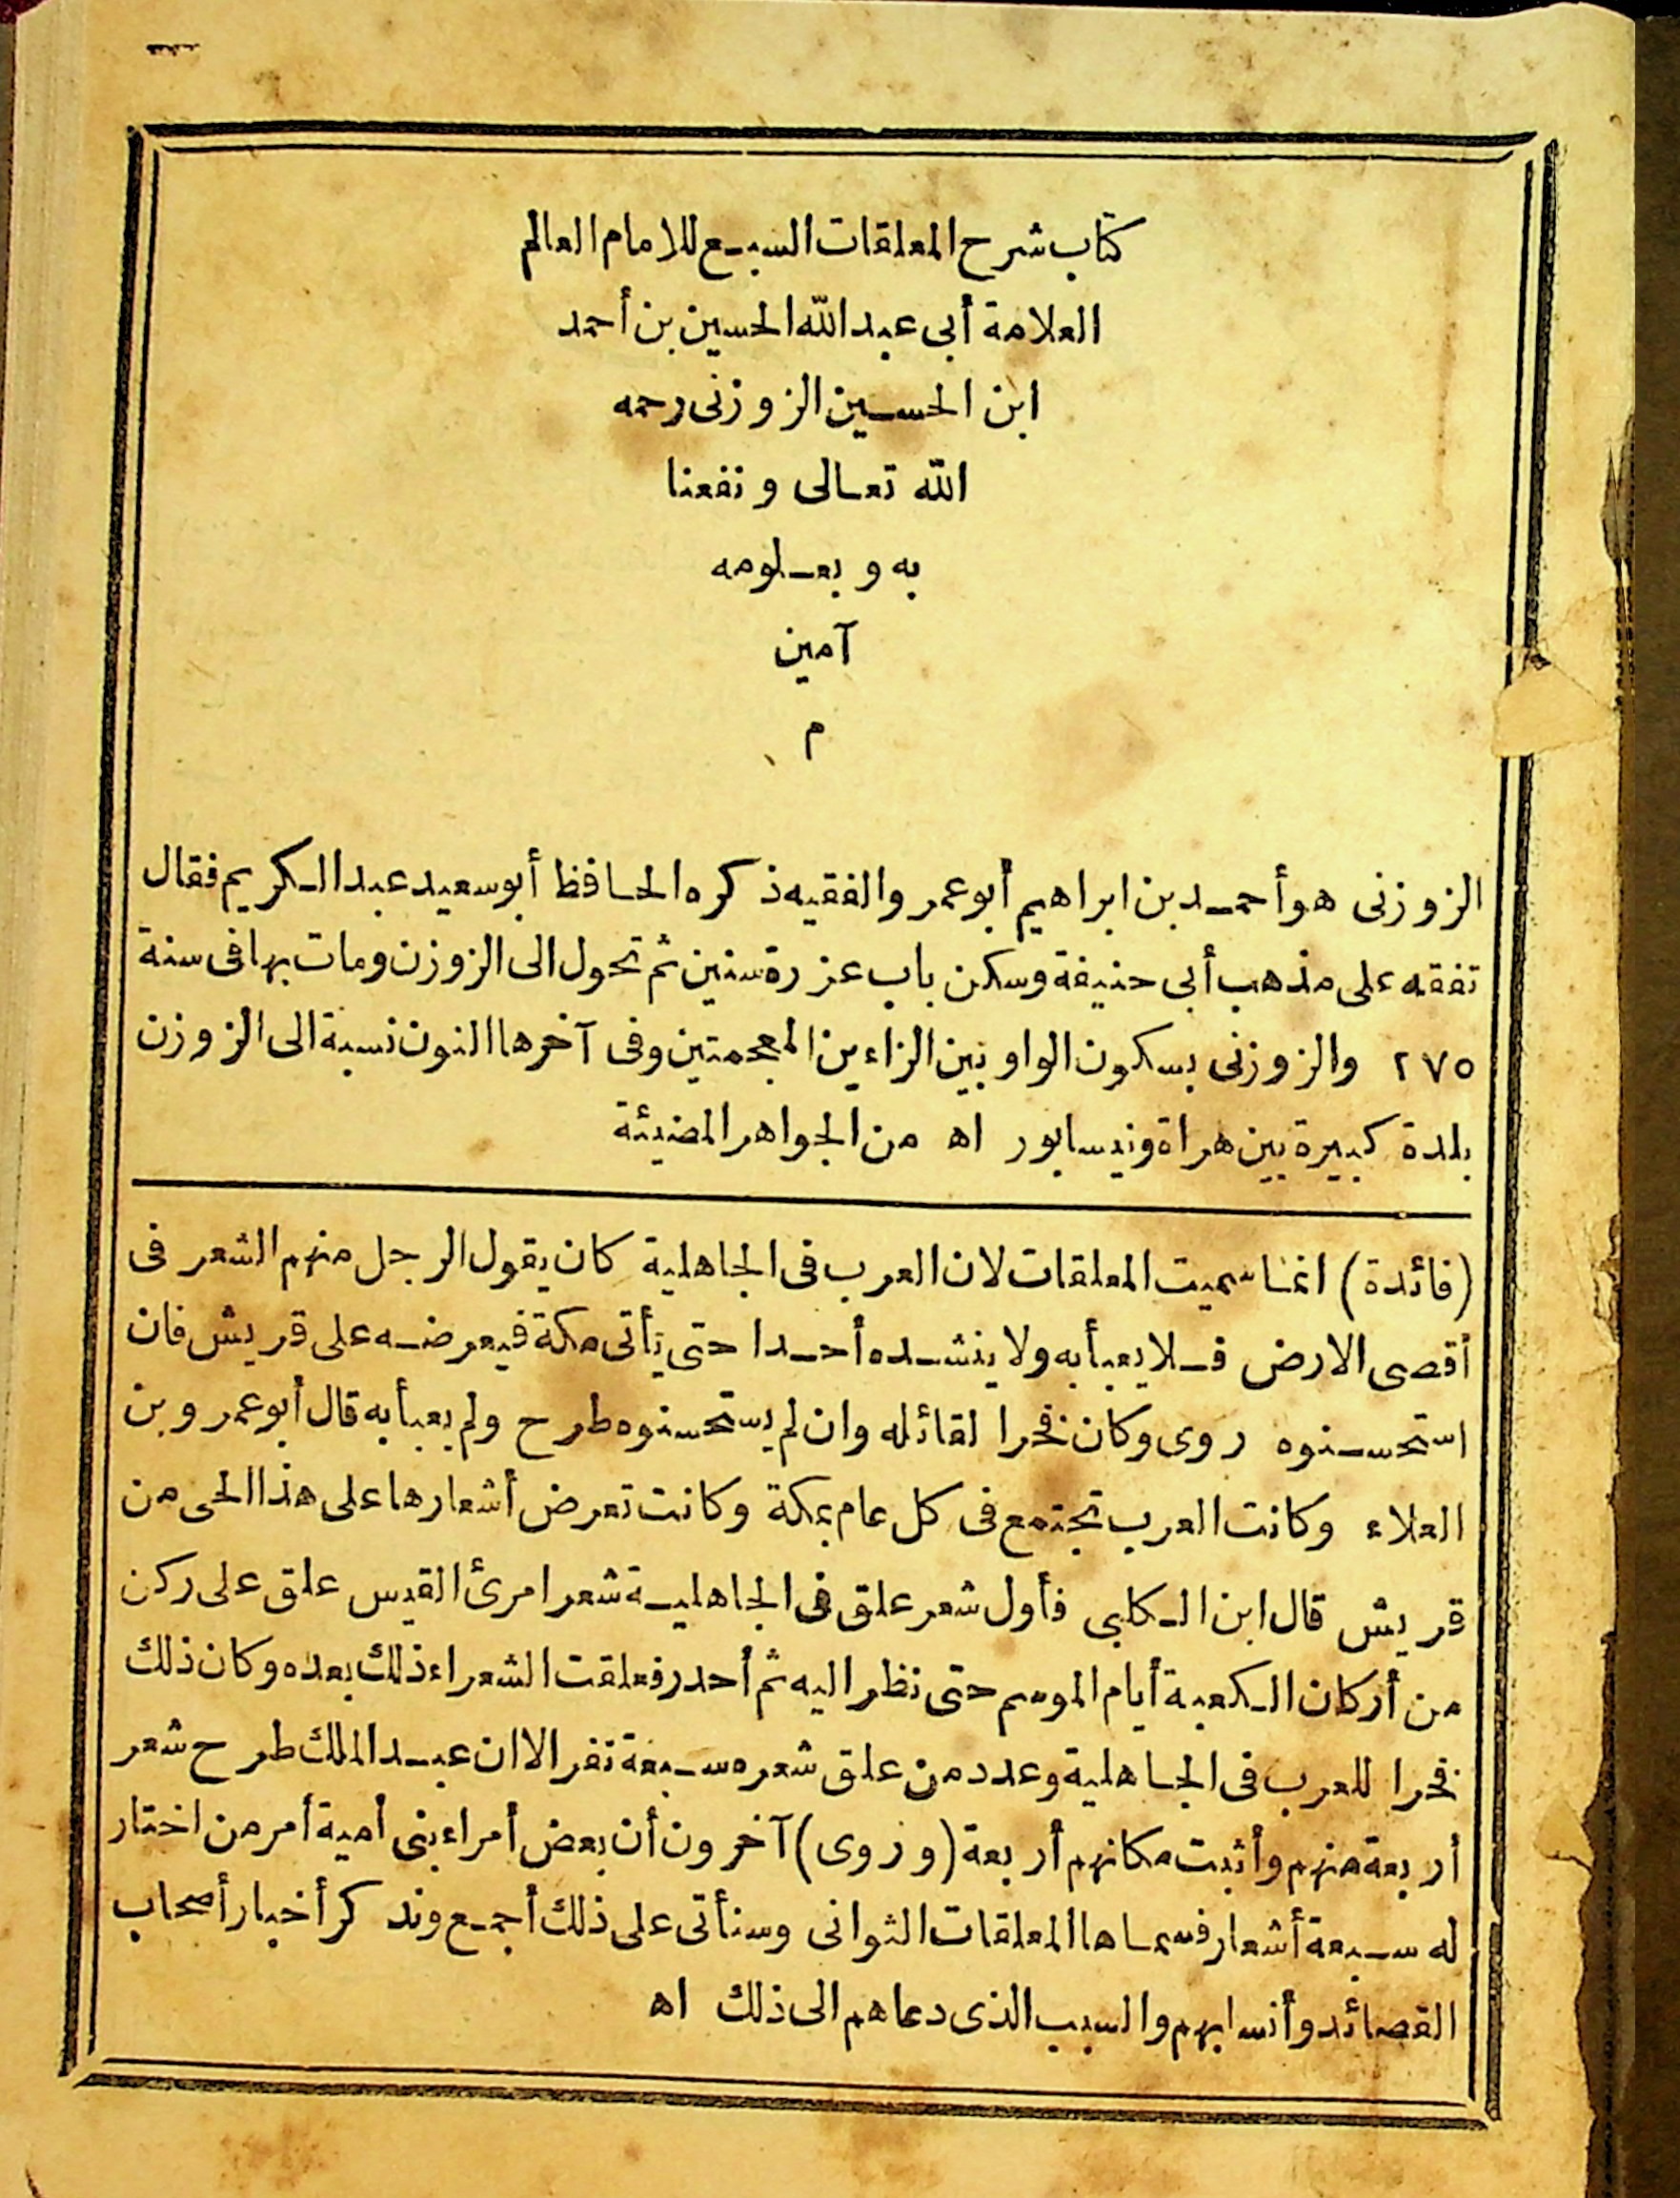 كتاب شرح المعلقات السبع للامام العالم
العلامة أبى عبد الله الحسين بن أحمد
ابن الحسين الزوزنى رحمه
الله تعالى ونفعنا
به وبعلومه
آمين
م
الزوزنى هو أحمد بن ابراهيم أبو عمرو الفقيه ذكره الحافظ أبو سعيد عبد الكريم فقال
تفقه على مذهب أبى حنيفة وسكن باب عزرة سنين ثم تحول الى الزوزن ومات بها فى سنة
٢٧٥ والزوزنى بسكون الواو بين الزاءين المعجمتين وفى آخرها النون نسبة الى الزوزن
بلدة كبيرة بين هراة ونيسابور اه من الجواهر المضيئة
(فائدة) انما سميت المعلقات لان العرب فى الجاهلية كان يقول الرجل منهم الشعر فى
أقصى الارض فلا يعبأ به ولا ينشده أحدا حتى يأتى مكة فيعرضه على قريش فان
استحسنوه روى وكان فخرا لقائله وان لم يستحسنوه طرح ولم يعبأ به قال أبو عمرو بن
العلاء وكانت العرب تجتمع فى كل عام بمكة وكانت تعرض أشعارها على هذا الحى من
قريش قال ابن الكلبى فأول شعر علق فى الجاهلية شعر امرئ القيس علق على ركن
من أركان الكعبة أيام الموسم حتى نظر اليه ثم أحدر فعلقت الشعراء ذلك بعده وكان ذلك
فخرا للعرب فى الجاهلية وعدد من علق شعره سبعة نفر الا ان عبد الملك طرح شعر
أربعة منهم وأثبت مكانهم أربعة (وروى) آخرون أن بعض أمراء بنى أمية أمر من اختار
له سبعة أشعار فسماها المعلقات الثوانى وسنأتى على ذلك أجمع ونذكر أخبار أصحاب
القصائد وأنسابهم والسبب الذى دعاهم الى ذلك اه